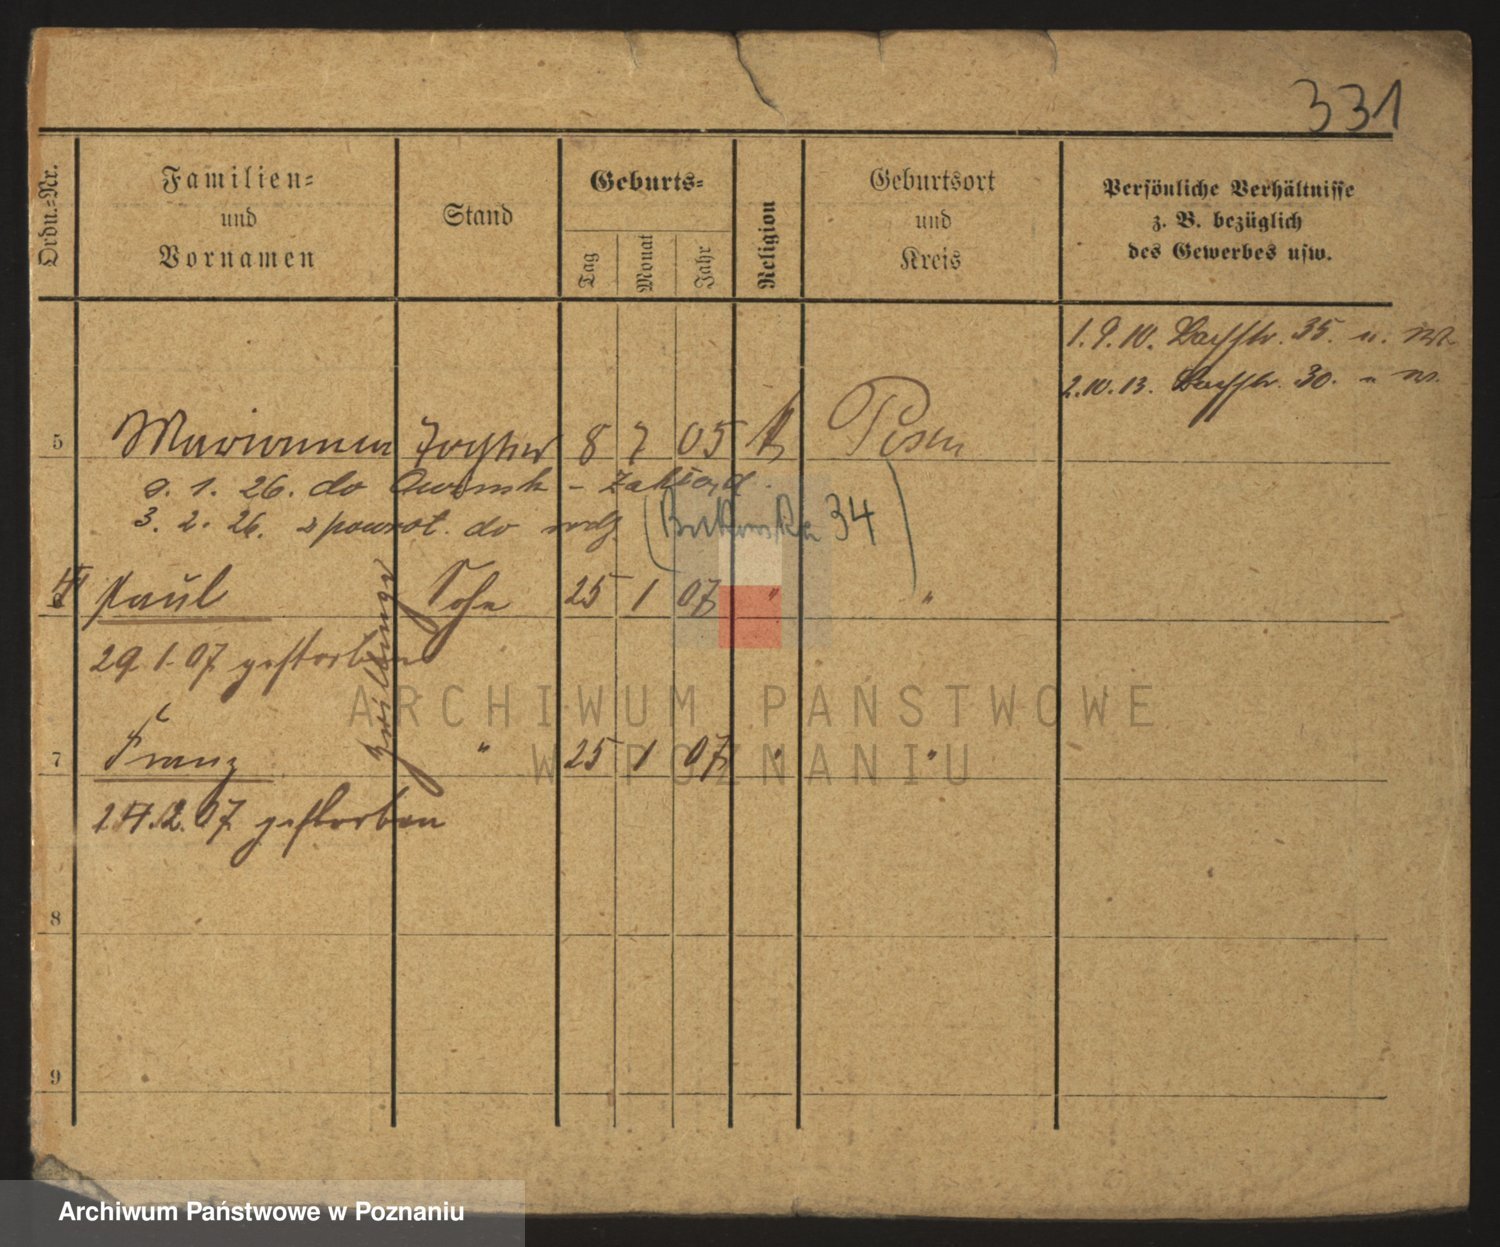 331
Ordn.-Nr.
Familien-
und
Vornamen
Stand
Geburts-
Tag
Monat
Jahr
Religion
Geburtsort
und
Kreis
Persönliche Verhältnisse
z. B. bezüglich
des Gewerbes usw.
1. 9. 10. 35.
2. 10. 13. 30.
5 Marianna Tochter 8 7 05 k Posen
9. 1. 26. do Owinsk - Zakład.
3. 2. 26. z powrot. do
(Bukowska 34)
6 Paul Sohn 25 1 07 " "
29. 1. 07 gestorben
Zwillinge
7 Franz " 25 1 07 " "
14. 2. 07 gestorben
8
9
ARCHIWUM PAŃSTWOWE
W POZNANIU
Archiwum Państwowe w Poznaniu